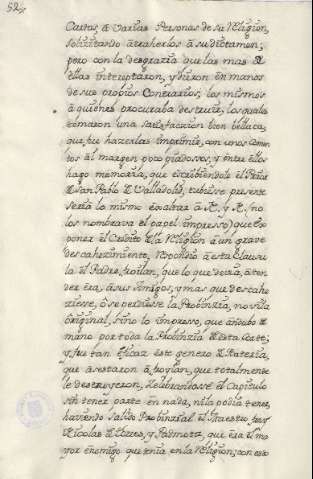 52
Cartas, à varias Personas de su Religion,
solicitando atraherlos à su dictamen;
pero con la desgrazia que las mas de
ellas interceptaron, y dieron en manos
de sus propios Contrarios, los mismos
a quienes procuraba destruir, los quales
tomaron una satisfaccion bien bellaca,
que fue hazerlas imprimir, con unos Comen
tos al margen poco piadosos, y entre ellos
hago memoria, que escribiendole el Prior
de San Pablo de Valladolid, tubiese presente
seria lo mismo exaltar à N. y N. (no
los nombrava el papel impresso) que Ex
poner el Credito de la Religion à un grave
descahezimiento, Respondio à esta Clausu
la el Padre, que lo que devia, aten
der era, à sus Amigos, y mas que descahe
ziesse, ò se perdiesse la Probinzia, no vi la
Original, sino lo impresso, que andubo de
mano por toda la Probinzia de esta Corte;
y fue tan eficaz este genero de
que asestaron à, que totalmente
le destruyeron, Zelebrandose el Capitulo
sin tener parte en nada, ni la podia tener,
haviendo salido Probinzial el Maestro fray
Nicolas de Torres, y Padmota, que era el ma
yor enemigo que tenia en la Religion; con esto